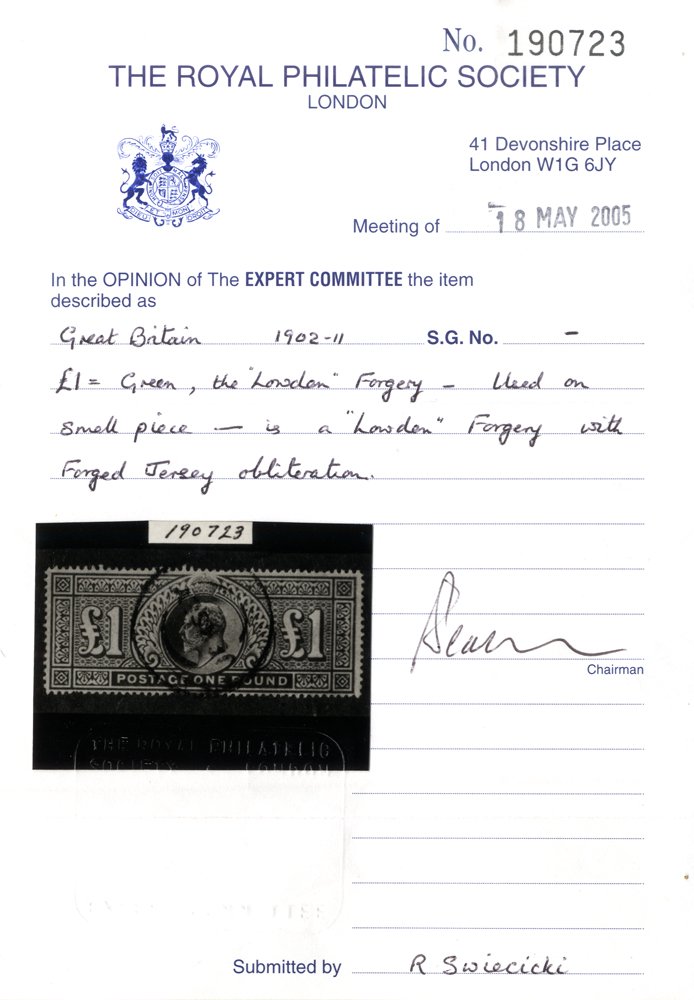 No. 190723
THE ROYAL PHILATELIC SOCIETY
LONDON
41 Devonshire Place
London W1G 6JY
Meeting of 18 MAY 2005
In the OPINION of The EXPERT COMMITTEE the item
described as
Great Britain 1902-11 S.G. No. -
£1= Green, the "Lowden" Forgery - Used on
small piece - is a "Lowden" Forgery with
Forged Jersey obliteration.
190723
£1 £1
POSTAGE ONE POUND
Chairman
THE ROYAL PHILATELIC
SOCIETY LONDON
Submitted by R Swiecicki